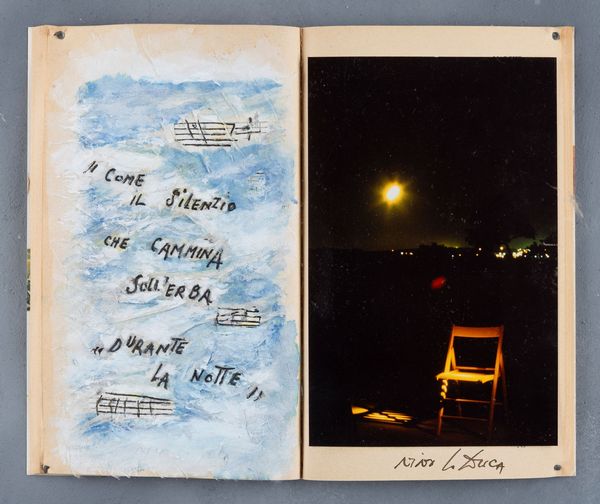 " COME
IL SILENZIO
CHE CAMMINA
SULL'ERBA
" DURANTE
LA NOTTE "
NINO